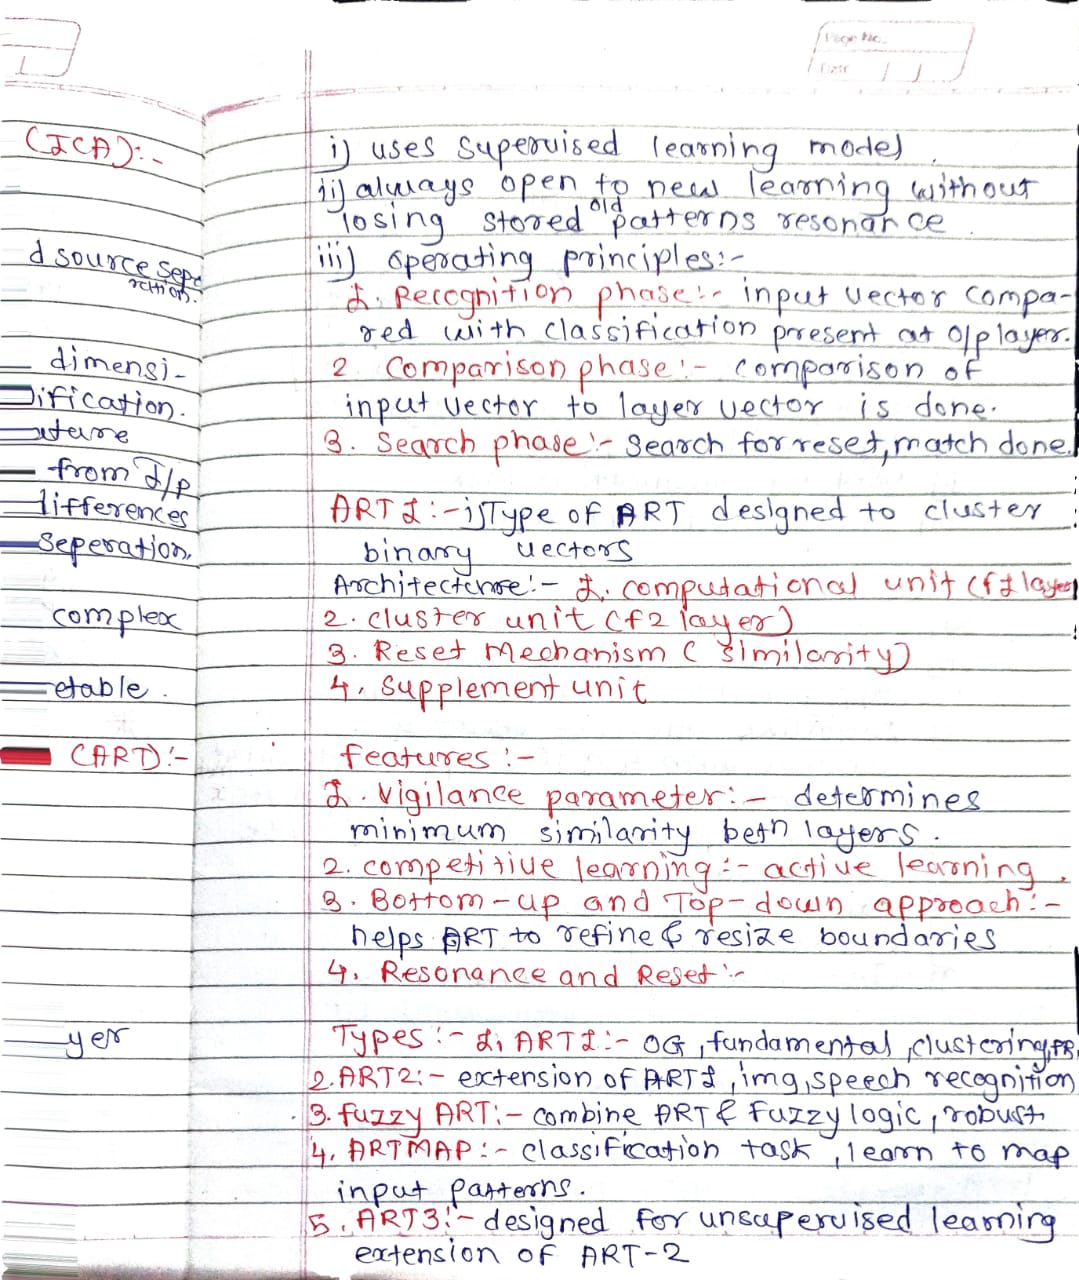 Page No.
Date
(ICA):-
d source sepe
ration.
dimensi-
ification.
ature
from I/p
differences
seperation.
complex
etable.
(ART):-
yer
i) uses supervised learning model.
ii) always open to new learning without
losing stored old patterns resonance.
iii) operating principles:-
1. Recognition phase:- input vector compa-
red with classification present at o/p layer.
2. Comparison phase:- comparison of
input vector to layer vector is done.
3. Search phase:- Search for reset, match done.
ART1:- i) Type of ART designed to cluster
binary vectors
Architecture:- 1. computational unit (f1 layer)
2. cluster unit (f2 layer)
3. Reset Mechanism (similarity)
4. Supplement unit
features:-
1. Vigilance parameter:- determines
minimum similarity betn layers.
2. competitive learning:- active learning.
3. Bottom-up and Top-down approach:-
helps ART to refine & resize boundaries
4. Resonance and Reset:-
Types:- 1. ART1:- OG, fundamental, clustering, PR,
2. ART2:- extension of ART1, img, speech recognition
3. fuzzy ART:- combine ART & Fuzzy logic, robust
4. ARTMAP:- classification task, learn to map
input patterns.
5. ART3:- designed for unsupervised learning
extension of ART-2